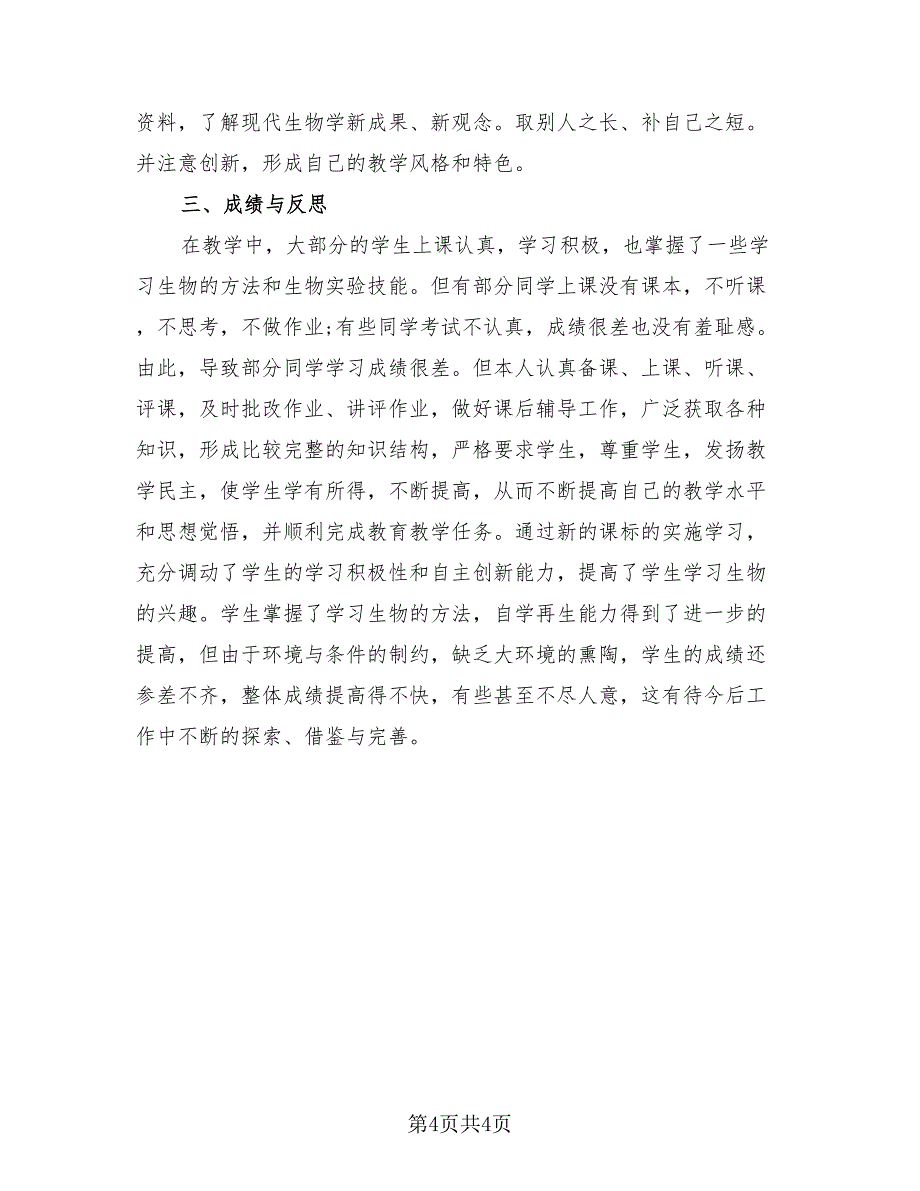 资料，了解现代生物学新成果、新观念。取别人之长、补自己之短。
并注意创新，形成自己的教学风格和特色。
三、成绩与反思
在教学中，大部分的学生上课认真，学习积极，也掌握了一些学
习生物的方法和生物实验技能。但有部分同学上课没有课本，不听课
，不思考，不做作业;有些同学考试不认真，成绩很差也没有羞耻感。
由此，导致部分同学学习成绩很差。但本人认真备课、上课、听课、
评课，及时批改作业、讲评作业，做好课后辅导工作，广泛获取各种
知识，形成比较完整的知识结构，严格要求学生，尊重学生，发扬教
学民主，使学生学有所得，不断提高，从而不断提高自己的教学水平
和思想觉悟，并顺利完成教育教学任务。通过新的课标的实施学习，
充分调动了学生的学习积极性和自主创新能力，提高了学生学习生物
的兴趣。学生掌握了学习生物的方法，自学再生能力得到了进一步的
提高，但由于环境与条件的制约，缺乏大环境的熏陶，学生的成绩还
参差不齐，整体成绩提高得不快，有些甚至不尽人意，这有待今后工
作中不断的探索、借鉴与完善。
第4页共4页